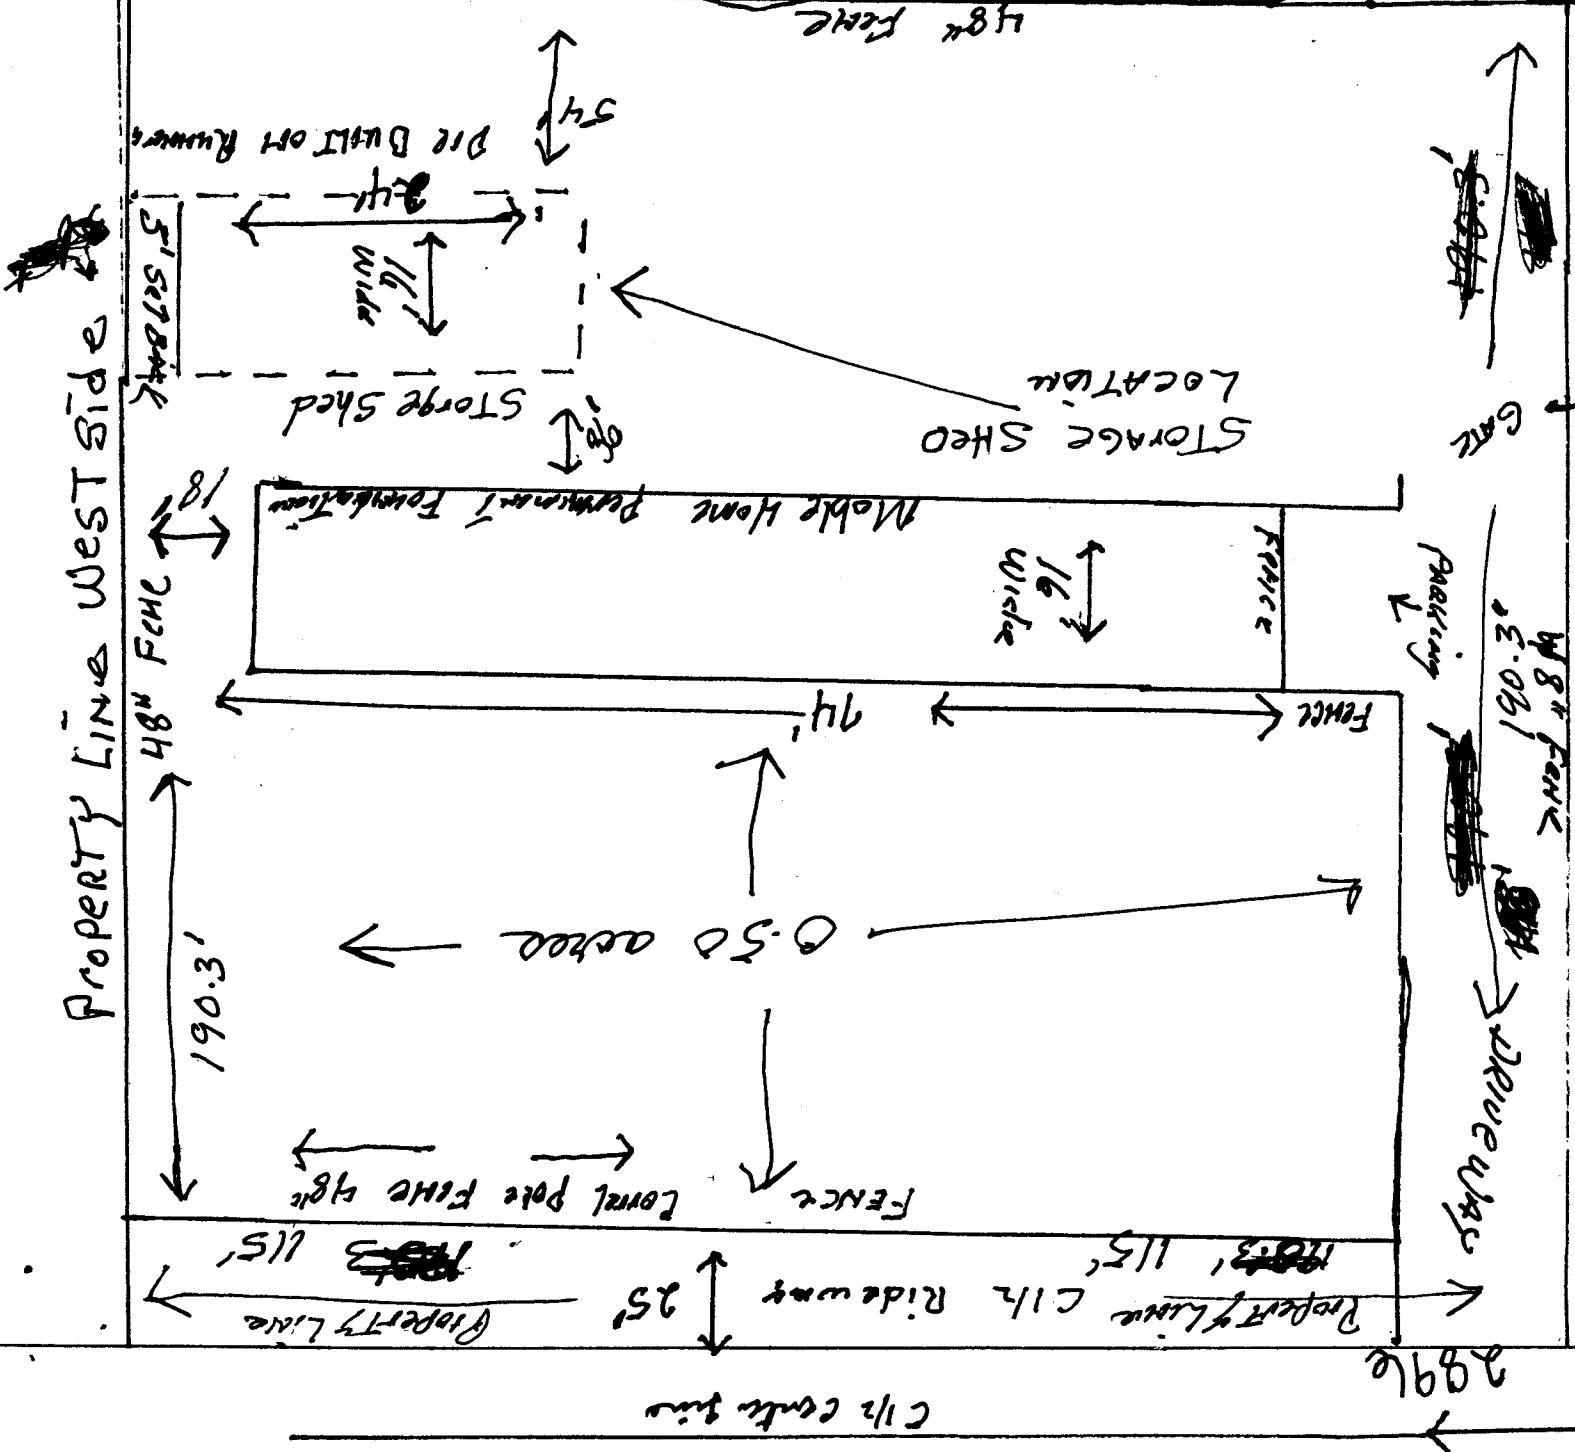 48" Fence
54'
Pre Built on Runners
24'
16'
Wide
5' SETBACK
Storge Shed
STORAGE SHED
LOCATION
GATE
18'
Moble Home Permanant Foundation
16'
Wide
Fence
PARKING
190.3'
48" Fence
PROPERTY LINE WEST SIDE
48" Fence
74'
Fence
0.50 acree
190.3'
DRIVEWAY
Corral Pole Fence 48"
FENCE
115'
115'
Property Line
25'
C 1/2 Rideway
Property Line
2896
C 1/2 center line